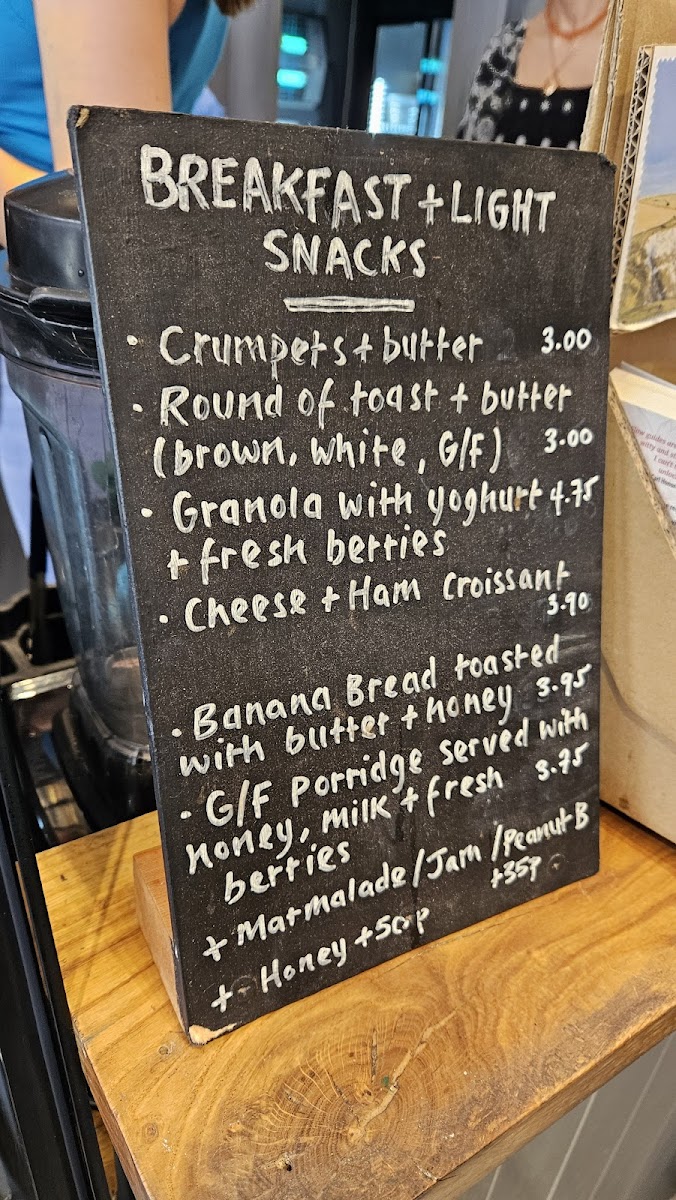 BREAKFAST + LIGHT
SNACKS
• Crumpets + butter 3.00
• Round of toast + butter
(brown, white, G/F) 3.00
• Granola with yoghurt 4.75
+ fresh berries
• Cheese + Ham croissant
3.90
• Banana Bread toasted
with butter + honey 3.95
• G/F Porridge served with
honey, milk + fresh 3.75
berries
+ Marmalade/Jam/Peanut B
+35p
+ Honey +50p